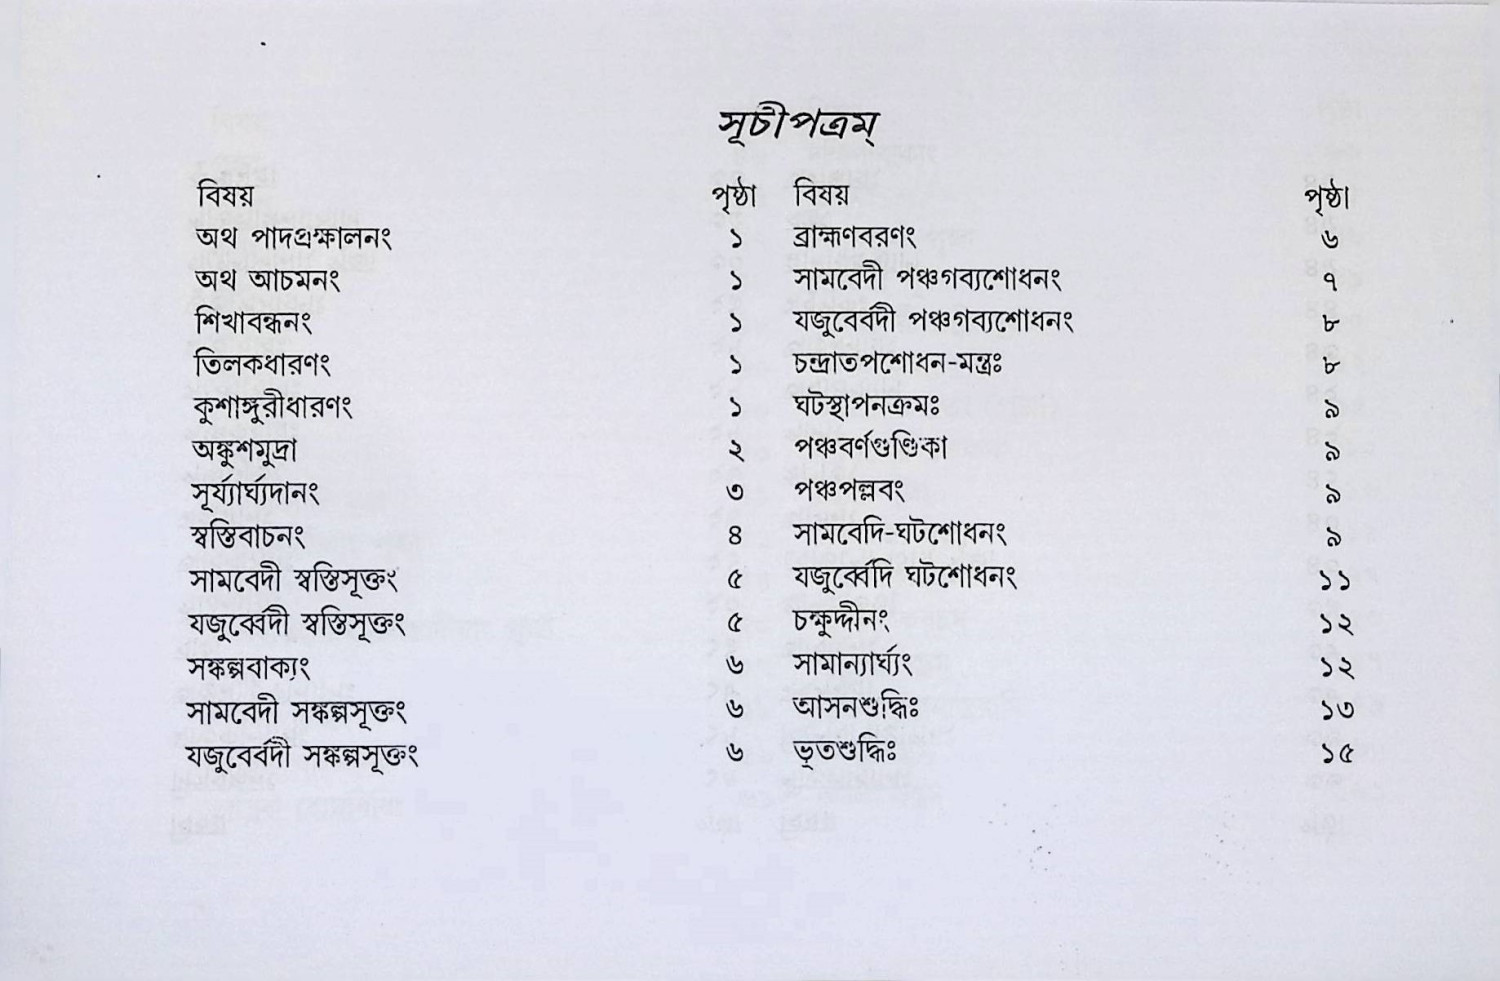 সূচীপত্রম্
বিষয় পৃষ্ঠা বিষয় পৃষ্ঠা
অথ পাদপ্রক্ষালনং ১ ব্রাহ্মণবরণং ৬
অথ আচমনং ১ সামবেদী পঞ্চগব্যশোধনং ৭
শিখাবন্ধনং ১ যজুবের্বদী পঞ্চগব্যশোধনং ৮
তিলকধারণং ১ চন্দ্রাতপশোধন-মন্ত্রঃ ৮
কুশাঙ্গুরীধারণং ১ ঘটস্থাপনক্রমঃ ৯
অঙ্কুশমুদ্রা ২ পঞ্চবর্ণগুণ্ডিকা ৯
সূর্য্যার্ঘ্যদানং ৩ পঞ্চপল্লবং ৯
স্বস্তিবাচনং ৪ সামবেদি-ঘটশোধনং ৯
সামবেদী স্বস্তিসূক্তং ৫ যজুর্ব্বেদি ঘটশোধনং ১১
যজুর্ব্বেদী স্বস্তিসূক্তং ৫ চক্ষুদ্দীনং ১২
সঙ্কল্পবাক্যং ৬ সামান্যার্ঘ্যং ১২
সামবেদী সঙ্কল্পসূক্তং ৬ আসনশুদ্ধিঃ ১৩
যজুবের্বদী সঙ্কল্পসূক্তং ৬ ভূতশুদ্ধিঃ ১৫